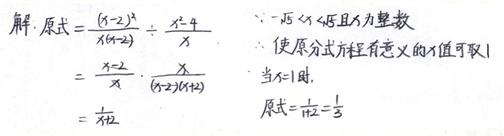 解:原式 = \frac{(x-2)^2}{x(x-2)} ÷ \frac{x^2-4}{x}
= \frac{x-2}{x} · \frac{x}{(x-2)(x+2)}
= \frac{1}{x+2}
∵ -√5 < x < √5 且x为整数
∴ 使原分式方程有意义的x值可取1
当x=1时,
原式 = \frac{1}{1+2} = \frac{1}{3}